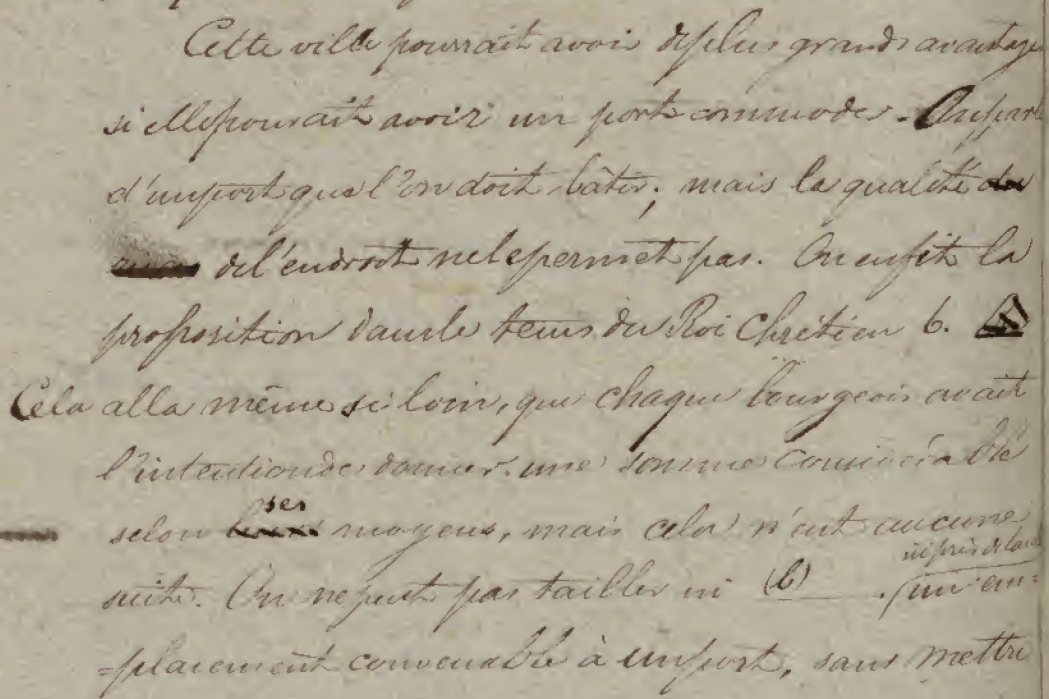 Cette ville pourrait avoir de plus grands avantage
si elle pouvait avoir un port commode. On parle
d'un port que l'on doit bâtir; mais la qualité du
de l'endroit ne le permet pas. On en fit la
proposition dans le tems du Roi Chrétien 6.
Cela alla même si loin, que chaque bourgeois avait
l'intention de donner une somme considérable
selon leurs ses moyens, mais cela n'eut aucune
suite. On ne peut pas tailler ni (b) un em=
=placement convenable à un port, sans mettre